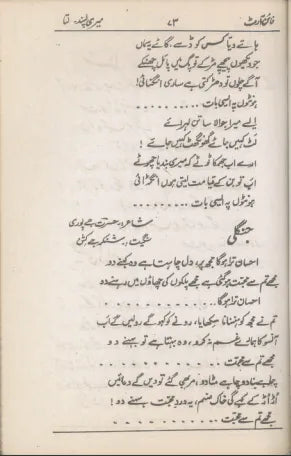 فائن آرٹ ۷۳ میری پسند۔ لتا
ہائے دیّا کس کو ڈسے، گائے یہ سماں
جو دیکھوں پیچھے مڑ کے تو پگ میں پائل جھنکے
آگے چلوں تو دھڑکتی ہے ساری انگنائی!
ہونٹوں پہ ایسی بات ..........
ایسے میرا جوالا سا تن لہرائے
لٹ کہیں جائے گھونگھٹ کہیں جائے!
ارے اب جھمکا ٹوٹے کہ میری بندیا چھوٹے
اب تو بن کے قیامت لیتی ہوں انگڑائی
ہونٹوں پہ ایسی بات ..........
جنگلی
شاعر: حسرت جے پوری
سنگیت: شنکر جے کشن
احسان ترا ہوگا مجھ پر، دل چاہتا ہے وہ کہنے دو
مجھے تم سے محبت ہوگئی ہے مجھے پلکوں کی چھاؤں میں رہنے دو
احسان ترا ہوگا ..........
تم نے مجھ کو ہنسنا سکھایا، رونے کو کہو گے رولیں گے اب
آنسو کا ہمارے غم نہ کرو، وہ بہتا ہے تو بہنے دو
مجھے تم سے محبت ..........
چاہے بنا دو چاہے مٹا دو، مر بھی گئے تو دیں گے دعائیں
اُڑ اُڑ کے کہے گی خاک صنم، یہ دردِ محبت سہنے دو!
مجھے تم سے محبت ..........